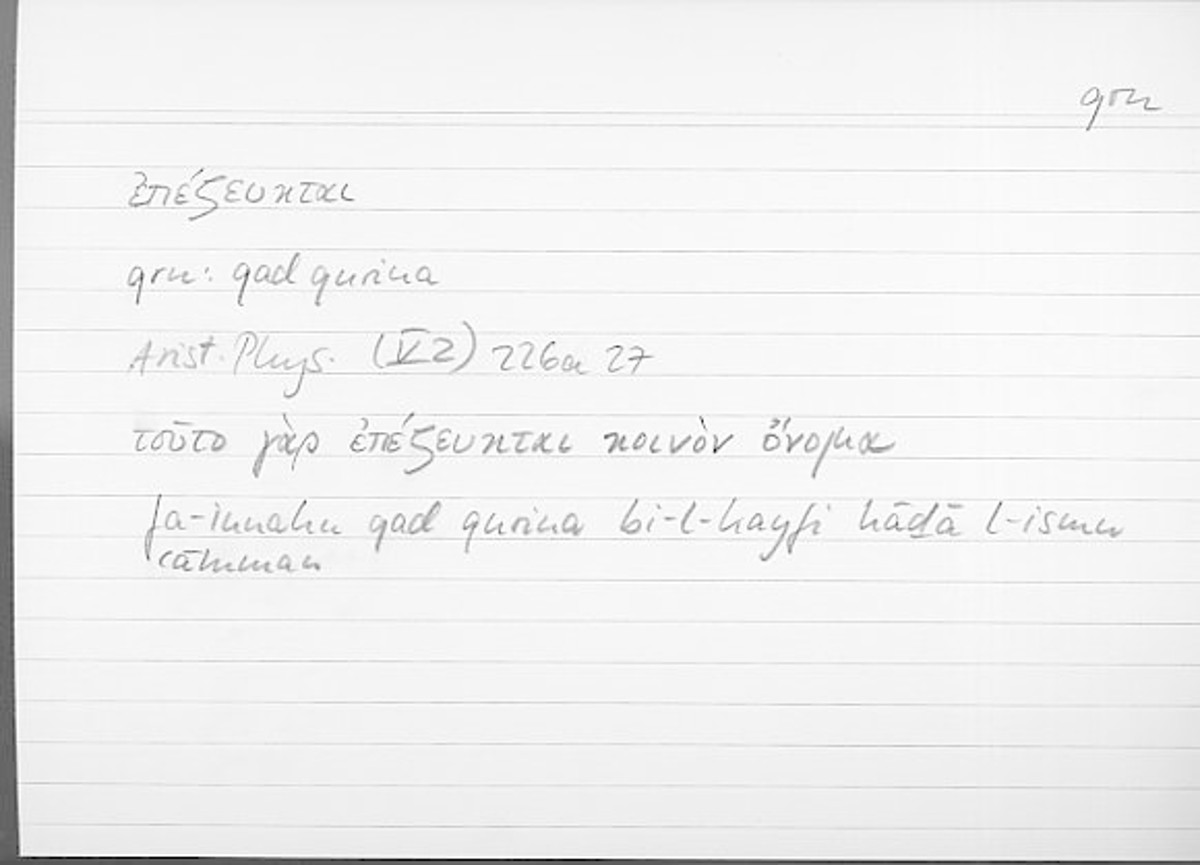 qrn
ἐπέζευκται
qrn: qad qurina
Arist. Phys. (V2) 226a 27
τοῦτο γὰρ ἐπέζευκται κοινὸν ὄνομα
fa-innahu qad qurina bi-l-kayfi hāḏā l-ismu
ʿāmman